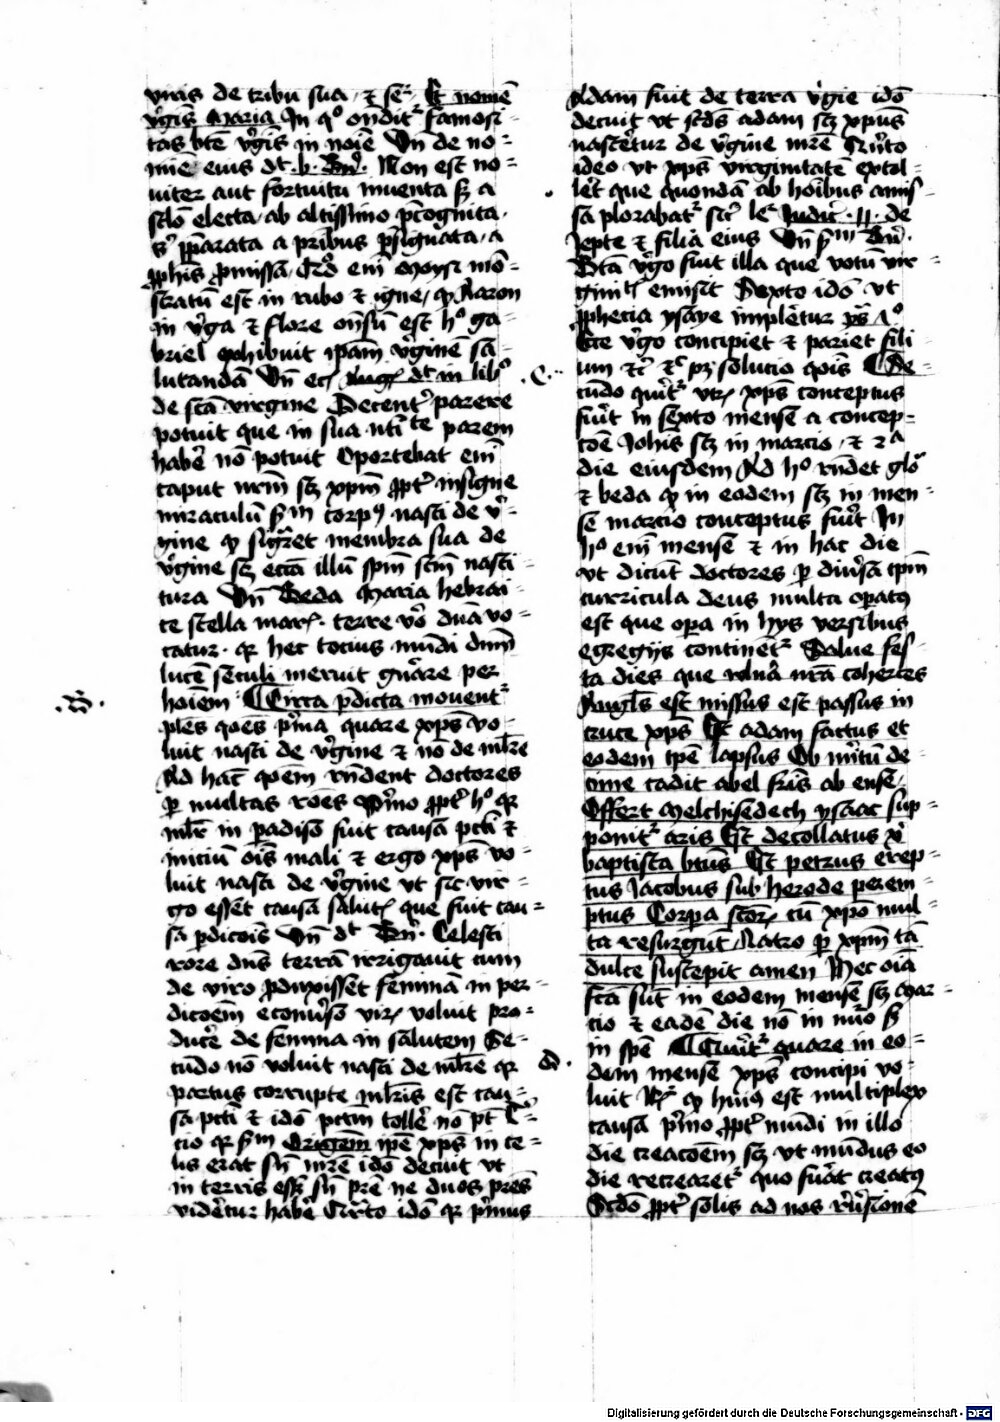 viris de tribu sua · ⁊ seqr Et nomē
v̓gīs Maria In qº ondit᷑ famosi⸗
tas btē v̓gīs in noīe Vn̄ de no⸗
mīe eius dt · b · Bn̓ · Non est no⸗
uiter aut fortuitu inuenta sȝ a
sclō electa ab altissimo p̄cognita ·
s p̄parata a prībus p̄signata a
ꝓphīs ꝓmissa
stratū est in rubo ⁊ igne ꝙ Aaron
in v̓ga ⁊ flore on̄su est hº ga⸗
briel exhibuit ip̄am v̓ginē sa⸗
lutandā Vn̄ Aug dt in libº
de scā virgine Decent᷑ parere
potuit que in sua parem
hab̓e nō potuit Oportebat em̄
caput nr̄m scȝ xp̄m ꝓpt᷑ insigne
miraculū scdm corpꝰ nasci de v̓⸗
gine ꝙ membra sua de
v̓gine scȝ eccīa illū sp̄m scm̄ nasci⸗
tura Vn̄ Beda Maria hebrai⸗
ce stella mar terre vº dn̄a vo⸗
catur · qr hec tocius mūdi dnm̄
lucē seculi meruit gn̄are per
hoīem Circa p̄dicta mouent᷑
.B.
pl̄es qōes p̓ma quare xp̄s vo⸗
luit nasci de v̓gine ⁊ nō de ml̓ie
Ad hāc qōem rn̄dent doctores
ꝑ multas rōes P̓mo ꝓpt᷑ hº qr
ml̓r in padiso fuit causa pcti ⁊
iniciū oīs mali ⁊ ergo xp̄s vo⸗
luit nasci de v̓gine vt sic vir⸗
go esset causa salut que fuit cau⸗
sa p̄dicōis Vn̄ dt Bn̓ · Celesti
rore dn̄s terrā irrigauit cum
de viro ꝓduxisset feminā in per⸗
dicōem econuso vir voluit pro⸗
duc̓e de femina in salutem Se⸗
cūdo nō voluit nasci de ml̓ie qr
partus corrupte ml̓ris est cau⸗
sa pcti ⁊ idō pctm toll̓e nō pt
cio qr scdm Origem ip̄e xp̄s in ce⸗
lis erat sn̄ mr̄e idō decuit vt
in terris eēt sn̄ p̄re ne duos p̄res
vid̓etur hab̓e Qr̓to idō qr p̓mus
Adam fuit de terra v̓gie idō
decuit vt scds adam scȝ xp̄us
nasc̓etur de v̓gine mr̄e Qn̓to
ideo vt xp̄s virginitatē extol⸗
l̓et que quondā ab hoībus amis⸗
sa plorabat᷑ sic̄ le Iudic · 11 · de
Iepte ⁊ filia eius Vn̄ scdm Bn̓ ·
Bta v̓go fuit illa que votū vir⸗
gini emisit Sexto idō vt
ꝓphecia ysaye impl̓etur
Ecce v̓go concipiet ⁊ pariet fili⸗
um ⁊c ⁊c pȝ solucio qōis
.C.
Se⸗
cūdo quir̓t᷑ vtr xp̄s conceptus
fuit in sexto mense a concep⸗
cōe Iohis scȝ in marcio ⁊ 2ª
die eiusdem Ad hº rn̄det glō
⁊ beda ꝙ in eodem scȝ in men⸗
se marcio conceptus fuit In
hº em̄ mense ⁊ in hac die
vt dicūt doctores ꝑ diu̓sa tpm̄
curricula deus multa opatꝰ
est que opa in hys versibus
egregijs continet᷑ Salue fes⸗
ta dies que vuln̄a nr̄a coherces
Angl̄s est missus est passus in
cruce xp̄s Est adam factus et
eodem tp̄e lapsus Ob m̓itū de⸗
cime cadit abel fr̄is ab ense
Offert melchisedech ysaac sup⸗
ponit᷑ aris Est decollatus xi
baptista btūs Est petrus erep⸗
tus Iacobus sub herode perem⸗
ptus Corpa scor cū xp̄o mul⸗
ta resurgūt Latro ꝑ xp̄m tā
dulce suscepit amen Hec oīa
fcā sūt in eodem mense scȝ mar⸗
cio ⁊ eadē die nō in nuo sȝ
in sp̄e
.D.
Quir̓t᷑ quare in eo⸗
dem mense xp̄s concipi vo⸗
luit ꝙ huiꝰ est multiplex
causa p̓mo ꝓpt᷑ mūdi in illo
die creacōem scȝ vt mūdus eo
die recrearet᷑ quo fuat creatꝰ
Scdō ꝓpt᷑ solis ad nos
Digitalisierung gefördert durch die Deutsche Forschungsgemeinschaft - DFG